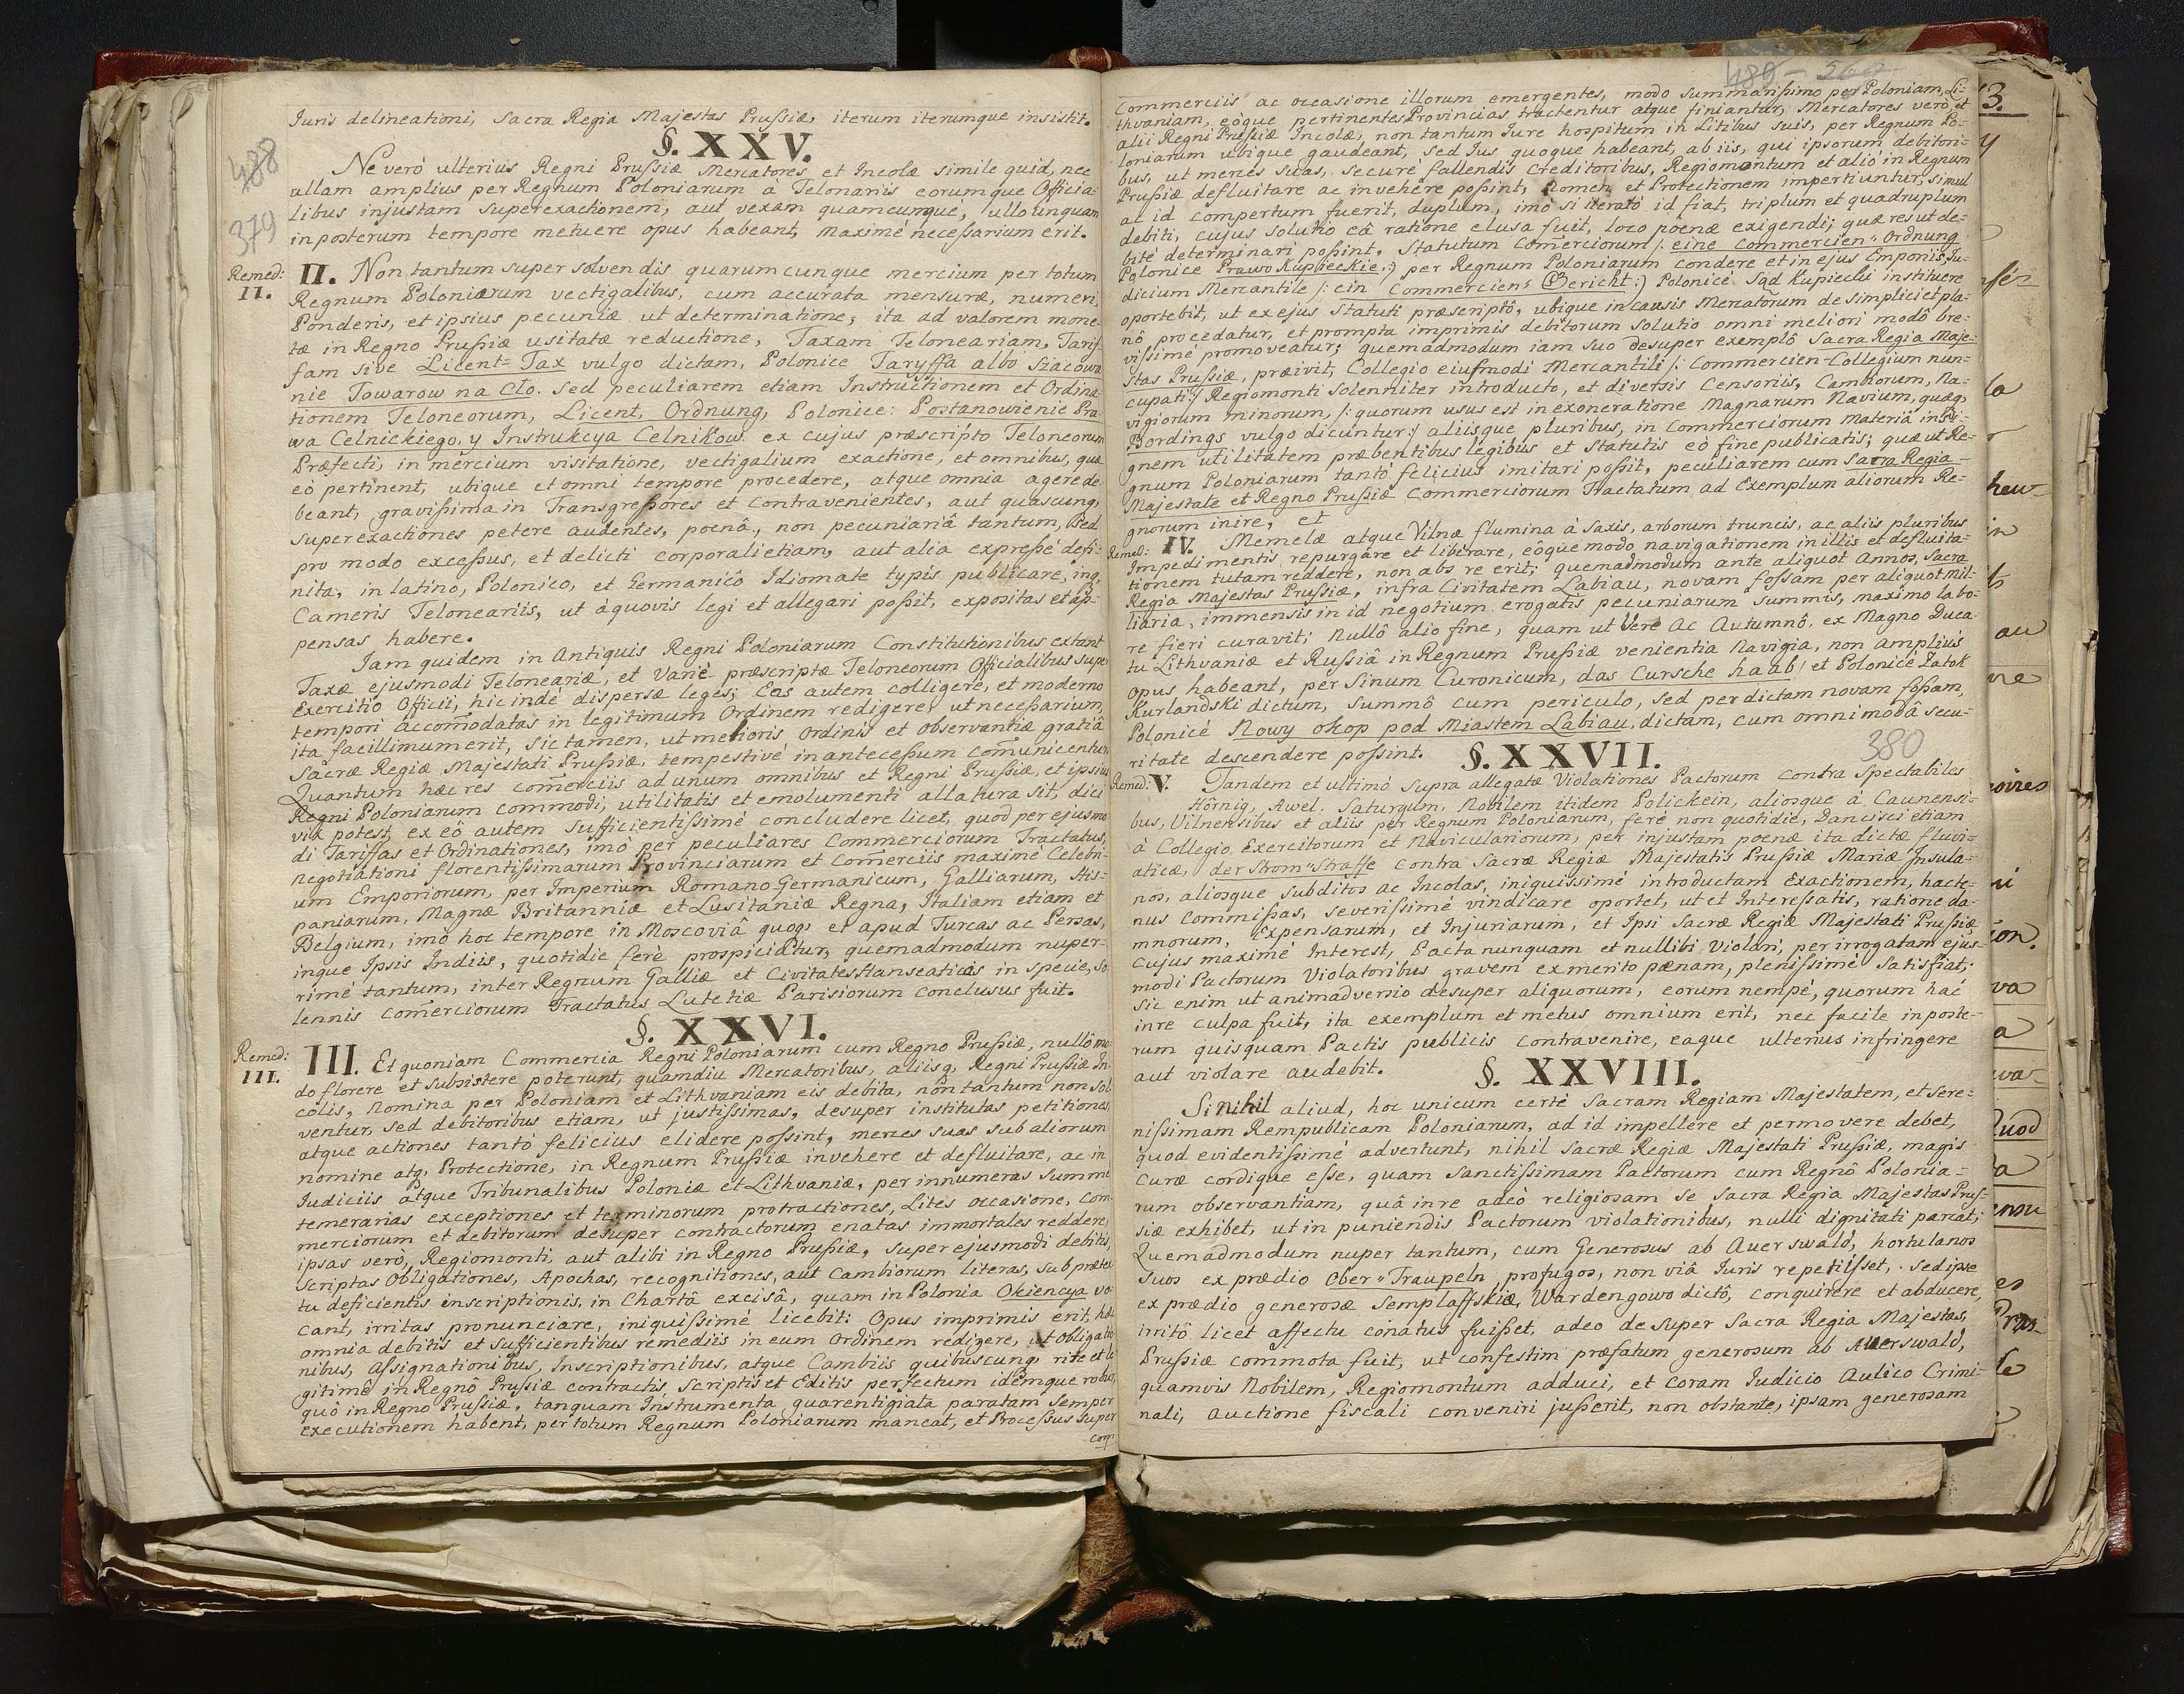 Juris delineationi, Sacra Regia Majestas Prußiæ, iterum iterumque insistit.
§. XXV.
488
379
Ne verò ulterius Regni Prußiæ Mercatores et Incolæ simile quid, nec
ullam amplius per Regnum Poloniarum à Telonariis eorumque Officia-
libus injustam superexactionem, aut vexam quamcunque, ullo unquam
inposterum tempore metuere opus habeant, maximè neceßarium erit.
Remed: II.
II. Non tantum super solvendis quarumcunque mercium per totum
Regnum Poloniarum vectigalibus, cum accurata mensuræ, numeri,
Ponderis, et ipsius pecuniæ ut determinatione, ita ad valorem mone-
tæ in Regno Prußiæ usitatæ reductione, Taxam Teloneariam, Tarif-
fam sive Licent=Tax vulgo dictam, Polonice Taryffa albo Szacowa
nie Towarow na Cło. sed peculiarem etiam Instructionem et Ordina-
tionem Teloneorum, Licent, Ordnung, Polonice: Postanowienie Pra
wa Celnickiego, y Instrukcya Celnikow. ex cujus præscripto Teloneorum
Præfecti, in mercium visitatione, vectigalium exactione, et omnibus, quæ
eò pertinent, ubique et omni tempore procedere, atque omnia agere de-
beant, gravißima in Transgreßores et contravenientes, aut quascunq,
superexactiones petere audentes, poenâ, non pecuniariâ tantum, sed
pro modo exceßus, et delicti corporali etiam, aut alia expreßè defi-
nita, in latino, Polonico, et Germanicô Idiomate typis publicare, inq,
Cameris Teloneariis, ut àquovis legi et allegari poßit, expositas et ap-
pensas habere.
Jam quidem in Antiquis Regni Poloniarum Constitutionibus extant
Taxæ ejusmodi Teloneariæ, et Variè præscriptæ Teloneorum Officialibus super
Exercitio Officii, hic indè dispersæ leges; Eas autem colligere, et moderno
tempori accomodatas in legitimum Ordinem redigere, ut neceßarium,
ita facillimum erit, sic tamen, ut melioris ordinis et observantiæ gratiâ
Sacræ Regiæ Majestati Prußiæ, tempestivè in anteceßum comunicentur.
Quantum hæc res comerciis ad unum omnibus et Regni Prußiæ, et ipsius
Regni Poloniarum commodi, utilitatis et emolumenti allatura sit, dici
vix potest, ex eô autem sufficientißimè concludere licet, quod per ejusmo
di Tariffas et Ordinationes, imò per peculiares Commerciorum Tractatus,
negotiationi florentißimarum Provinciarum et Comerciis maximè Celebri-
um Emporiorum, per Imperium Romano Germanicum, Galliarum, His-
paniarum, Magnæ Britanniæ et Lusitaniæ Regna, Italiam etiam et
Belgium, imò hoc tempore in Moscoviâ quoq, et apud Turcas ac Persas,
inque Ipsis Indiis, quotidie ferè prospiciatur, quemadmodum nuper-
rimè tantum, inter Regnum Galliæ et Civitates Hanseaticas in specie, so-
lennis comerciorum Tractatus Lutetiæ Parisiorum conclusus fuit.
§. XXVI.
Remed: III.
III. Et quoniam Commercia Regni Poloniarum cum Regno Prußiæ, nullô mo
do florere et subsistere poterunt, quamdiu Mercatoribus, aliisq, Regni Prußiæ In-
colis, nomina per Poloniam et Lithvaniam eis debita, non tantum non sol
ventur, sed debitoribus etiam, ut justißimas, desuper institutas petitiones
atque actiones tantò felicius elidere poßint, merces suas sub aliorum
nomine atq, Protectione, in Regnum Prußiæ invehere et defluitare, ac in
Judiciis atque Tribunalibus Poloniæ et Lithvaniæ, per innumeras summe
temerarias exceptiones et terminorum protractiones, Lites occasione, Com-
merciorum et debitorum desuper contractorum enatas immortales reddere,
ipsas verò, Regiomonti, aut alibi in Regno Prußiæ, super ejusmodi debitis,
scriptas Obligationes, Apochas, recognitiones, aut Cambiorum literas, sub præte
tu deficientis inscriptionis, in Chartâ excisâ, quam in Polonia Okiencya vo
cant, irritas pronunciare, iniquißimè licebit: Opus imprimis erit, hæc
omnia debitis et sufficientibus remediis in eum Ordinem redigere, ut Obligatio
nibus, Aßignationibus, Inscriptionibus, atque Cambiis quibuscunq, rite et le
gitimè in Regnô Prußiæ contractis, scriptis et Editis perfectum idemque robur,
quô in Regno Prußiæ, tanquam Instrumenta guarentigiata paratam semper
executionem habent, per totum Regnum Poloniarum maneat, et Proceßus super
com
489 - 560
Commerciis ac occasione illorum emergentes, modo summarißimo per Poloniam, Li-
thvaniam, eòque pertinentes Provincias tractentur atque finiantur, Mercatores verò, et
alii Regni Prußiæ Incolæ, non tantum Jure hospitum in Litibus suis, per Regnum Po-
loniarum ubique gaudeant, sed Jus quoque habeant, ab iis, qui ipsorum debitori-
bus, ut merces suas, securè fallendis Creditoribus, Regiomontum et aliò in Regnum
Prußiæ defluitare ac invehere poßint, nomen et Protectionem impertiuntur, simul
ac id compertum fuerit, duplum, imò si iteratò id fiat, triplum et quadruplum
debiti, cujus solutio eâ ratione elusa fuit, loco poenæ exigendi; quæ res ut de-
bitè determinari poßint, Statutum Comerciorum /: eine Commercien=Ordnung
Polonice Prawo Kupieckie.:) per Regnum Poloniarum condere et in ejus Emporiis, Ju-
dicium Mercantile /: ein Commerciens Gericht:) Polonicè Sąd Kupiecki instituere
oportebit, ut ex ejus Statuti præscriptô, ubique in causis Mercatorum de simplici et pla-
nô procedatur, et prompta imprimis debitorum solutio omni meliori modô bre-
vißimè promoveatur; quemadmodum iam suo desuper exemplô Sacra Regia Maje-
stas Prußiæ, præivit, Collegio eiusmodi Mercantili /: Commercien-Collegium nun-
cupati:/ Regiomonti solenniter introducto, et diversis Censoriis, Cambiorum, Na-
vigiorum minorum, /: quorum usus est in exoneratione Magnarum Navium, quæq,
Bordings vulgo dicuntur:/ aliisque pluribus, in Commerciorum materiâ insi-
gnem utilitatem præbentibus legibus et Statutis eò fine publicatis; quæ ut Re-
gnum Poloniarum tantò felicius imitari poßit, peculiarem cum Sacra Regia
Majestate et Regno Prußiæ Commerciorum Tractatum ad Exemplum aliorum Re-
gnorum inire, et
Remed: IV. Memelæ atque Vilnæ flumina à saxis, arborum truncis, ac aliis pluribus
Impedimentis repurgare et liberare, eoque modo navigationem in illis et defluita-
tionem tutam reddere, non abs re erit; quemadmodum ante aliquot Annos, Sacra
Regia Majestas Prußiæ, infra Civitatem Labiau, novam foßam per aliquot mil-
liaria, immensis in id negotium erogatis pecuniarum summis, maximo labo-
re fieri curavit; nullô alio fine, quam ut Vere Ac Autumnô, ex Magno Duca-
tu Lithvaniæ et Rußiâ in Regnum Prußiæ venientia Navigia, non ampliùs
opus habeant, per Sinum Curonicum, das Cursche haab/ et Polonicè Zatok
Kurlandski dictum, summô cum periculo, sed per dictam novam foßam,
Polonicè Nowy okop pod Miastem Labiau, dictam, cum omnimodâ secu-
ritate descendere poßint.
§. XXVII.
380
Remed: V. Tandem et ultimò supra allegatæ Violationes Pactorum contra Spectabiles
Hörnig, Awel. Saturgum, Nobilem itidem Polickein, aliosque à Caunensi-
bus, Vilnensibus et aliis per Regnum Poloniarum, ferè non quotidie, Dancisci etiam
à Collegio Exercitorum et Naviculariorum, per injustam poenæ ita dictæ, fluvi-
aticæ, der Strom=Straffe contra Sacræ Regiæ Majestatis Prußiæ Mariæ Insula-
nos, aliosque subditos ac Incolas, iniquissimè introductam Exactionem, hacte-
nus Commißas, severißimè vindicare oportet, ut et Intereßatis, ratione da-
mnorum, Expensarum, et Injuriarum, et Ipsi Sacræ Regiæ Majestati Prußiæ
cujus maximè Interest, Pacta nunquam et nullibi Violari, per irrogatam ejus-
modi Pactorum Violatoribus gravem ex merito pœnam, plenißimè satisfiat;
sic enim ut animadversio desuper aliquorum, eorum nempè, quorum hac
in re culpa fuit, ita exemplum et metus omnium erit, nec facile inposte-
rum quisquam Pactis publicis contravenire, eaque ulterius infringere
aut violare audebit.
§. XXVIII.
Si nihil aliud, hoc unicum certè Sacram Regiam Majestatem, et Sere-
nißimam Rempublicam Poloniarum, ad id impellere et permovere debet,
quod evidentißimè advertunt, nihil Sacræ Regiæ Majestati Prußiæ, magis
curæ cordique eße, quam Sanctißimam Pactorum cum Regnô Polonia-
rum observantiam, quâ in re adeò religiosam se Sacra Regia Majestas Prus-
siæ exhibet, ut in puniendis Pactorum violationibus, nulli dignitati parcat;
Quemadmodum nuper tantum, cum Generosus ab Auerswald, hortulanos
suos ex prædio Ober=Traupeln profugos, non viâ Juris repetiißet, sed ipse
ex prædio generosæ Semplaffskiæ, Wardengowo dictô, conquirere et abducere,
irritô licet affectu conatus fuißet, adeo desuper Sacra Regia Majestas,
Prußiæ commota fuit, ut confestim præfatum generosum ab Auerswald,
quamvis Nobilem, Regiomontum adduci, et coram Judicio Aulico Crimi-
nali, auctione fiscali conveniri jußerit, non obstante, ipsam generosam